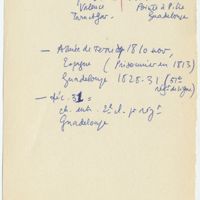 Valence Pointe à P.tre
Tarn et Gar. Guadeloupe
— Armée de terre 1810 nov,
Espagne (Prisonnier en 1813)
Guadeloupe 1828-31 (51e
rég. de ligne)
— déc. 31 =
ch. sub. 2e cl. pr rég.
Guadeloupe